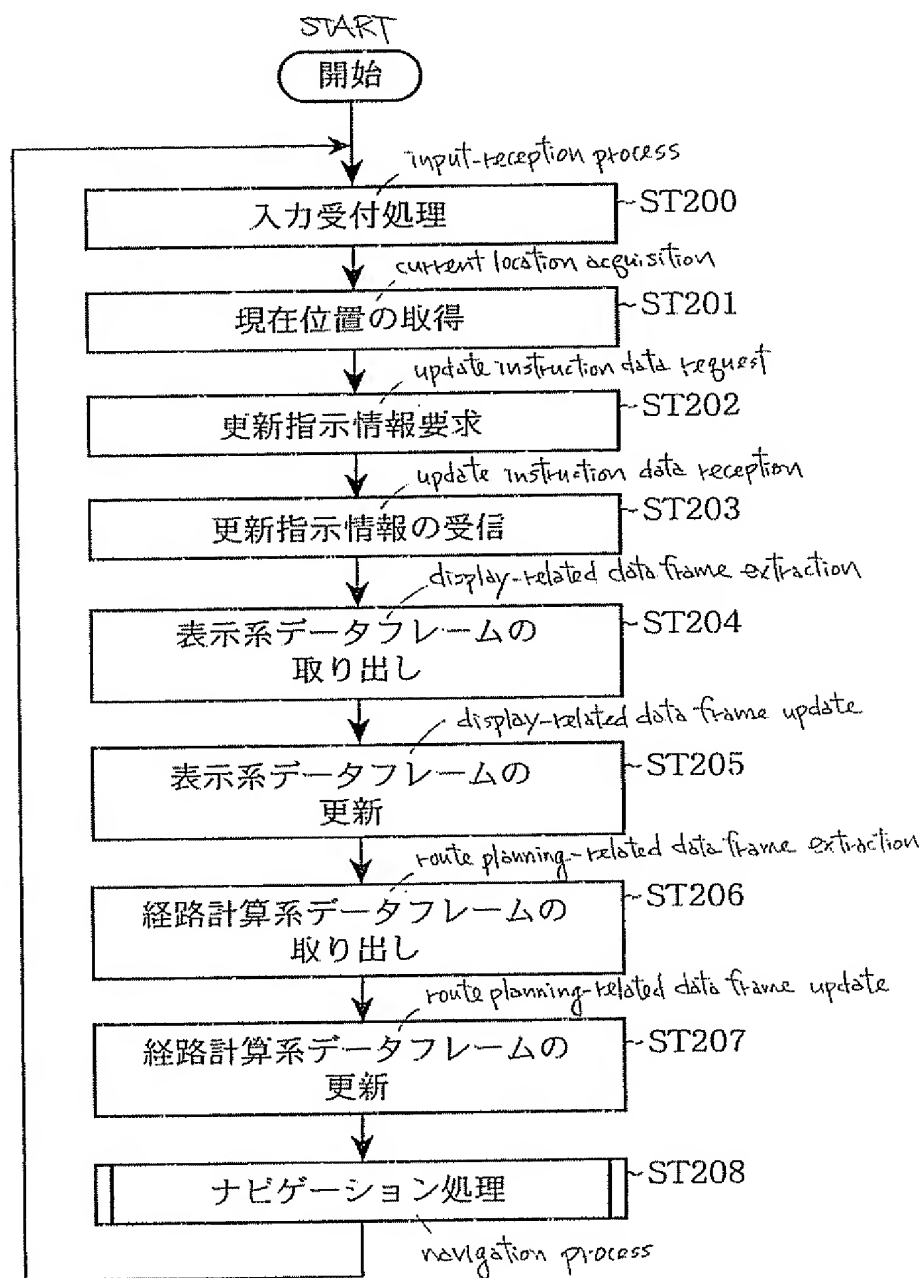 START
開始
input-reception process
入力受付処理
ST200
current location acquisition
現在位置の取得
ST201
update instruction data request
更新指示情報要求
ST202
update instruction data reception
更新指示情報の受信
ST203
display-related data frame extraction
表示系データフレームの
取り出し
ST204
display-related data frame update
表示系データフレームの
更新
ST205
route planning-related data frame extraction
経路計算系データフレームの
取り出し
ST206
route planning-related data frame update
経路計算系データフレームの
更新
ST207
ナビゲーション処理
ST208
navigation process